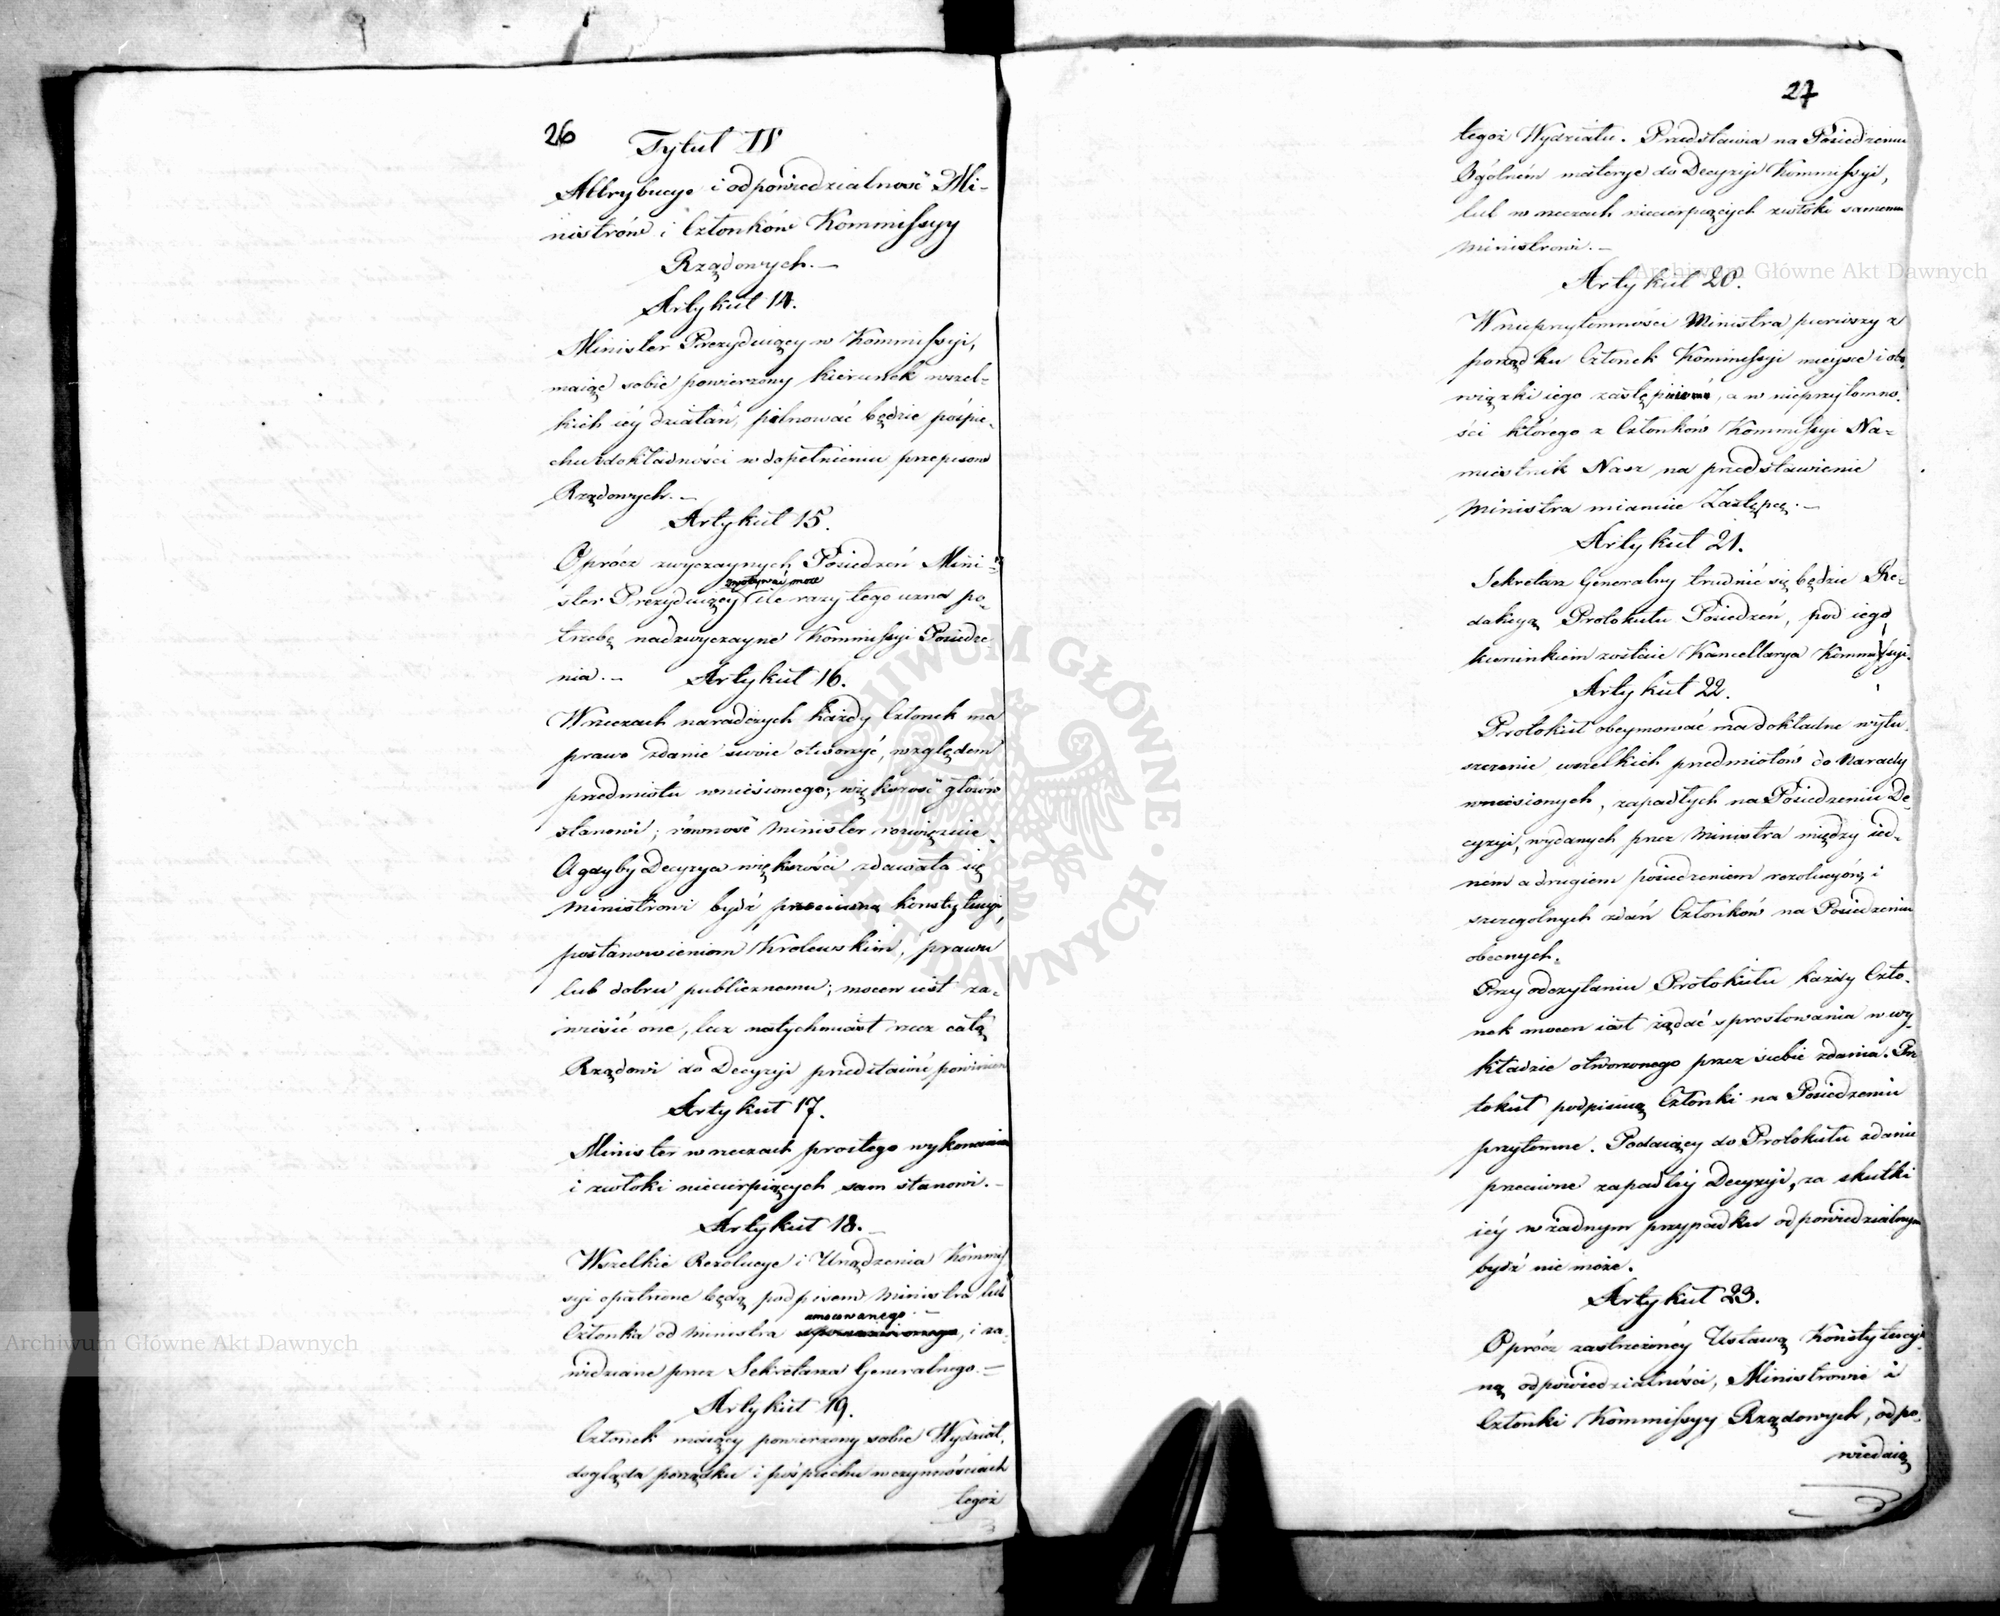 26
Tytuł IV
Attrybucye i odpowiedzialność Mi-
nistrów i Członków Kommissyy
Rządowych. —
Artykuł 14.
Minister Prezyduiący w Kommissyi,
maiąc sobie powierzony kierunek wszel-
kich iéy działań, pilnować będzie pośpie-
chu i dokładności w dopełnieniu przepisow
Rządowych. —
Artykuł 15.
Oprócz zwyczaynych Posiedzeń Mini-
zwoływać może
ster Prezyduiący ile razy tego uzna po-
trzebę nadzwyczayne Kommissyi Posiedze-
nia. — Artykuł 16.
W rzeczach naradczych każdy Członek ma
prawo zdanie swoie otworzyć, względem
przedmiotu wniesionego; większość głosów
stanowi; równość Minister rozwiązuie.
A gdyby Decyzya większości zdawała się
Ministrowi bydź przeciwną konstytucyi,
postanowieniom Królewskim, prawu
lub dobru publicznemu; mocen iest za-
wiesić one, lecz natychmiast rzecz całą
Rządowi do Decyzyi przedstawić powinien
Artykuł 17.
Minister w rzeczach prostego wykonania
i zwłoki niecierpiących sam stanowi. —
Artykuł 18. —
Wszelkie Rezolucye i Urządzenia Kommis-
syi opatrzone będą podpisem Ministra lub
umocowanego
Członka od Ministra , i za-
widziane przez Sekretarza Generalnego. —
Artykuł 19.
Członek maiący powierzony sobie Wydział,
dogląda porządku i pośpiechu w czynnościach
tegoż
27
tegoż Wydziału. Przedstawia na Posiedzeniu
Ogólném materye do Decyzyi Kommissyi,
lub w rzeczach niecierpiących zwłoki samemu
Ministrowi. —
Artykuł 20.
W nieprzytomności Ministra pierwszy z
porządku Członek Kommissyi mieysce i obo-
wiązki iego , a w nieprzytomno-
ści którego z Członków Kommissyi Na-
miestnik Nasz na przedstawienie
Ministra mianuie Zastępcę. —
Artykuł 21.
Sekretarz Generalny trudnić się będzie Re-
dakcyą Protokułu Posiedzeń, pod iego
kierunkiem zostaie Kancellarya Kommissyi.
Artykuł 22.
Protokuł obeymować ma dokładne wyłu-
szczenie wszelkich przedmiotów do Narady
wniesionych, zapadłych na Posiedzeniu De-
cyzyi, wydanych przez Ministra między ied-
ném a drugiem posiedzeniem rezolucyów, i
szczególnych zdań Członków na Posiedzeniu
obecnych.
Przy odczytaniu Protokułu każdy Czło-
nek mocen iest żądać sprostowania w wy-
kładzie otworzonego przez siebie zdania. Pro
tokuł podpisuią Członki na Posiedzeniu
przytomne. Podaiący do Protokułu zdanie
przeciwne zapadłéy Decyzyi, za skutki
iéy w żadnym przypadku odpowiedzialnym
bydź nie może.
Artykuł 23.
Oprócz zastrzeżonéy Ustawą Konstytucyi-
ną odpowiedzialności, Ministrowie i
Członki Kommissyy Rządowych, odpo-
wiedzią
Archiwum Główne Akt Dawnych
Archiwum Główne Akt Dawnych
ARCHIWUM GŁÓWNE AKT DAWNYCH